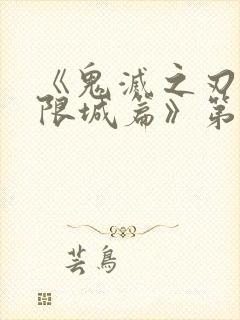 《鬼滅之刃
限城篇》第
芸鳥